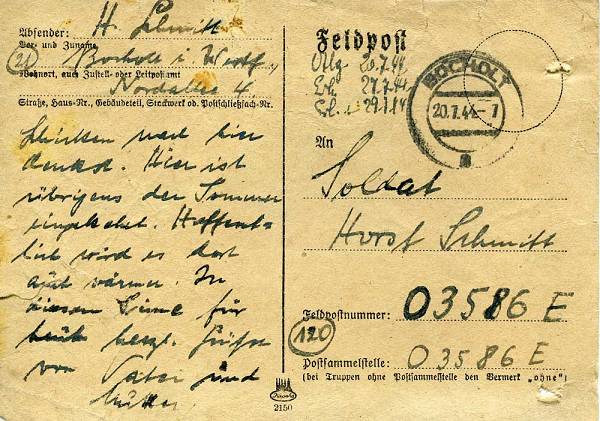 Absender: H. Schmitt
Vor- und Zuname
(21) Bocholt i. Westf.
Wohnort, auch Zustell- oder Leitpostamt
Nordallee 4.
Straße, Haus-Nr., Gebäudeteil, Stockwerk od. Postschließfach-Nr.
und hier
denkst. Hier ist
übrigens der Sommer
eingekehrt. Hoffent-
lich wird es dort
wärmer. In
diesem Sinne für
heute herzl. Grüße
von Vater und
Mutter
2150
Feldpost
20.7.44
27.7.44
29.7.44
BOCHOLT
20.7.44-7
An
Soldat
Horst Schmitt
Feldpostnummer: 03586 E
120
Postsammelstelle: 03586 E
(bei Truppen ohne Postsammelstelle den Vermerk „ohne")